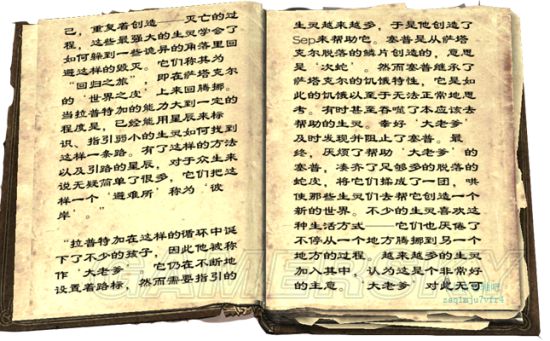 己，重复着创造——灭亡的过
程，这些最强大的生灵学会了
如何躲到一些诡异的角落里回
避这样的毁灭。它们称其为
“回归之旅”，即在萨塔克尔
的‘世界之皮’上来回腾挪。
当拉普特加的能力大到一定的
程度是，已经能用星辰来标
识、指引弱小的生灵如何找到
这样一条路。有了这样的方法
以及引路的星辰，对于众生来
说无疑简单了很多，它们把这
样一个‘避难所’称为‘彼
岸’。”
“拉普特加在这样的循环中诞
下了不少的孩子，因此他被称
作‘大老爹’。它仍在不断地
设置着路标，然而需要指引的
生灵越来越多，于是他创造了
Sep来帮助它。塞普是从萨塔
克尔脱落的鳞片创造的，意思
是‘次蛇’。然而塞普继承了
萨塔克尔的饥饿特性，它是如
此的饥饿以至于无法正常地思
考。有时甚至吞噬了本应该去
帮助的生灵。幸好‘大老爹’
及时发现并阻止了塞普。最
终，厌烦了帮助‘大老爹’的
塞普，凑齐了足够多的脱落的
蛇皮，将它们揉成了一团，哄
使那些生灵们去帮它创造一个
新的世界。不少的生灵喜欢这
种生活方式——它们也厌倦了
不停从一个地方腾挪到另一个
地方的过程。越来越多的生灵
加入其中，认为这是个非常好
的主意。‘大老爹’对此无可
GAMERSKY
zaq1mju7vfr4